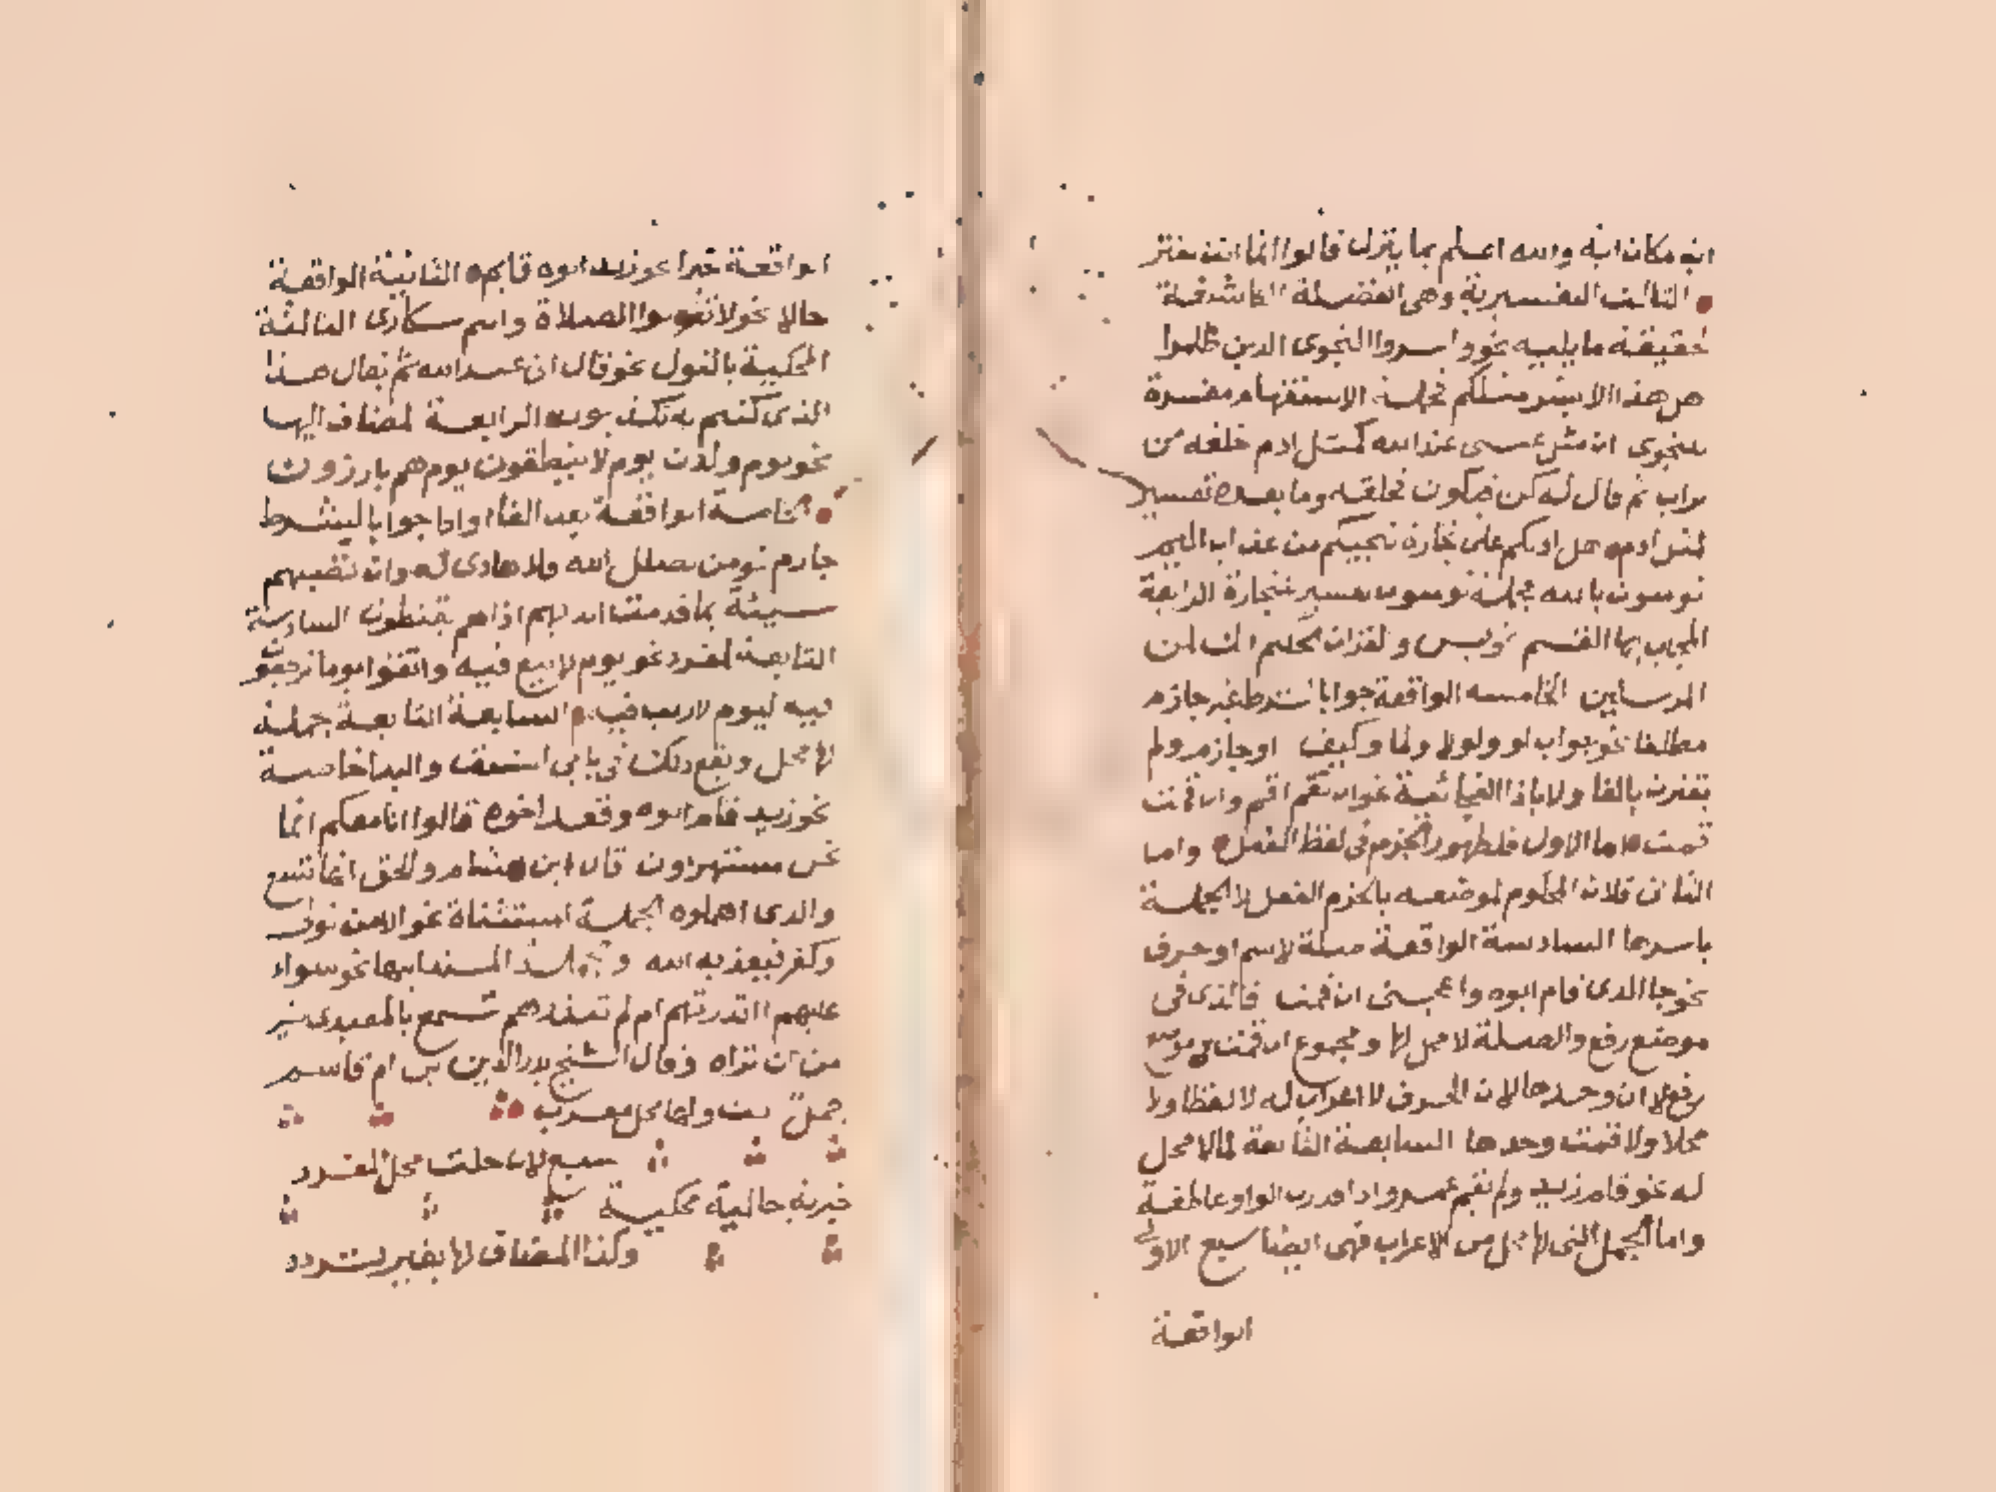 اية مكان اية والله اعلم بما ينزل قالوا انما انت مفتر
الثالث التفسيرية وهى الفضلة الكاشفة
لحقيقة ما يليه نحو واسروا النجوى الذين ظلموا
هل هذا الا بشر مثلكم فجملة الاستفهام مفسرة
للنجوى ان مثل عيسى عند الله كمثل ادم خلقه من
تراب ثم قال له كن فيكون فخلقه وما بعده تفسير
لمثل ادم هل ادلكم على تجارة تنجيكم من عذاب اليم
تومنون بالله فجملة تومنون تفسير لتجارة الرابعة
المجاب بها القسم نحو يس والقران الحكيم انك لمن
المرسلين الخامسة الواقعة جوابا لشرط غير جازم
مطلقا نحو جواب لو ولولا ولما وكيف او جازم ولم
يقترن بالفا ولا باذا الفجائية نحو ان تقم اقم وان قمت
قمت اما الاول فلظهور الجزم فى لفظ الفعل واما
الثانى فلان المحكوم لموضعه بالجزم الفعل لا الجملة
باسرها السادسة الواقعة صلة لاسم او حرف
نحو جا الذى قام ابوه واعجبنى ان قمت فالذى فى
موضع رفع والصلة لا محل لها ومجموع ان قمت فى موضع
رفع لا ان وحدها لان الحرف لا اعراب له لا لفظا ولا
محلا ولا قمت وحدها السابعة التابعة لما لا محل
له نحو قام زيد ولم يقم عمرو اذا قدرت الواو عاطفة
واما الجمل التى لها محل من الاعراب فهى ايضا سبع الاولى
الواقعة
الواقعة خبرا نحو زيد ابوه قايم الثانية الواقعة
حالا نحو لا تقربوا الصلاة وانتم سكارى الثالثة
المحكية بالقول نحو قال انى عبد الله ثم يقال هذا
الذى كنتم به تكذبون الرابعة المضاف اليها
نحو يوم ولدت يوم لا ينطقون يوم هم بارزون
الخامسة الواقعة بعد الفا او اذا جوابا لشرط
جازم نحو من يضلل الله فلا هادى له وان تصبهم
سيئة بما قدمت ايديهم اذا هم يقنطون السادسة
التابعة لمفرد نحو يوم لا بيع فيه واتقوا يوما ترجعون
فيه ليوم لا ريب فيه السابعة التابعة جملة
لها محل ويقع ذلك فى بابى النسق والبدل خاصة
نحو زيد قام ابوه وقعد اخوه قالوا انا معكم انما
نحن مستهزون قال ابن هشام والحق انها تسع
والذى اهملوه الجملة المستثناة نحو الا من تولى
وكفر فيعذبه الله والجملة المسند اليها نحو سواء
عليهم اانذرتهم ام لم تنذرهم تسمع بالمعيدى خير
من ان تراه وقال الشيخ بدر الدين بن ام قاسم
جمل اتت ولها محل معرب
سبع لان حلت محل المفرد
خبرية حالية محكية
وكذا المضاف لها بغير تردد